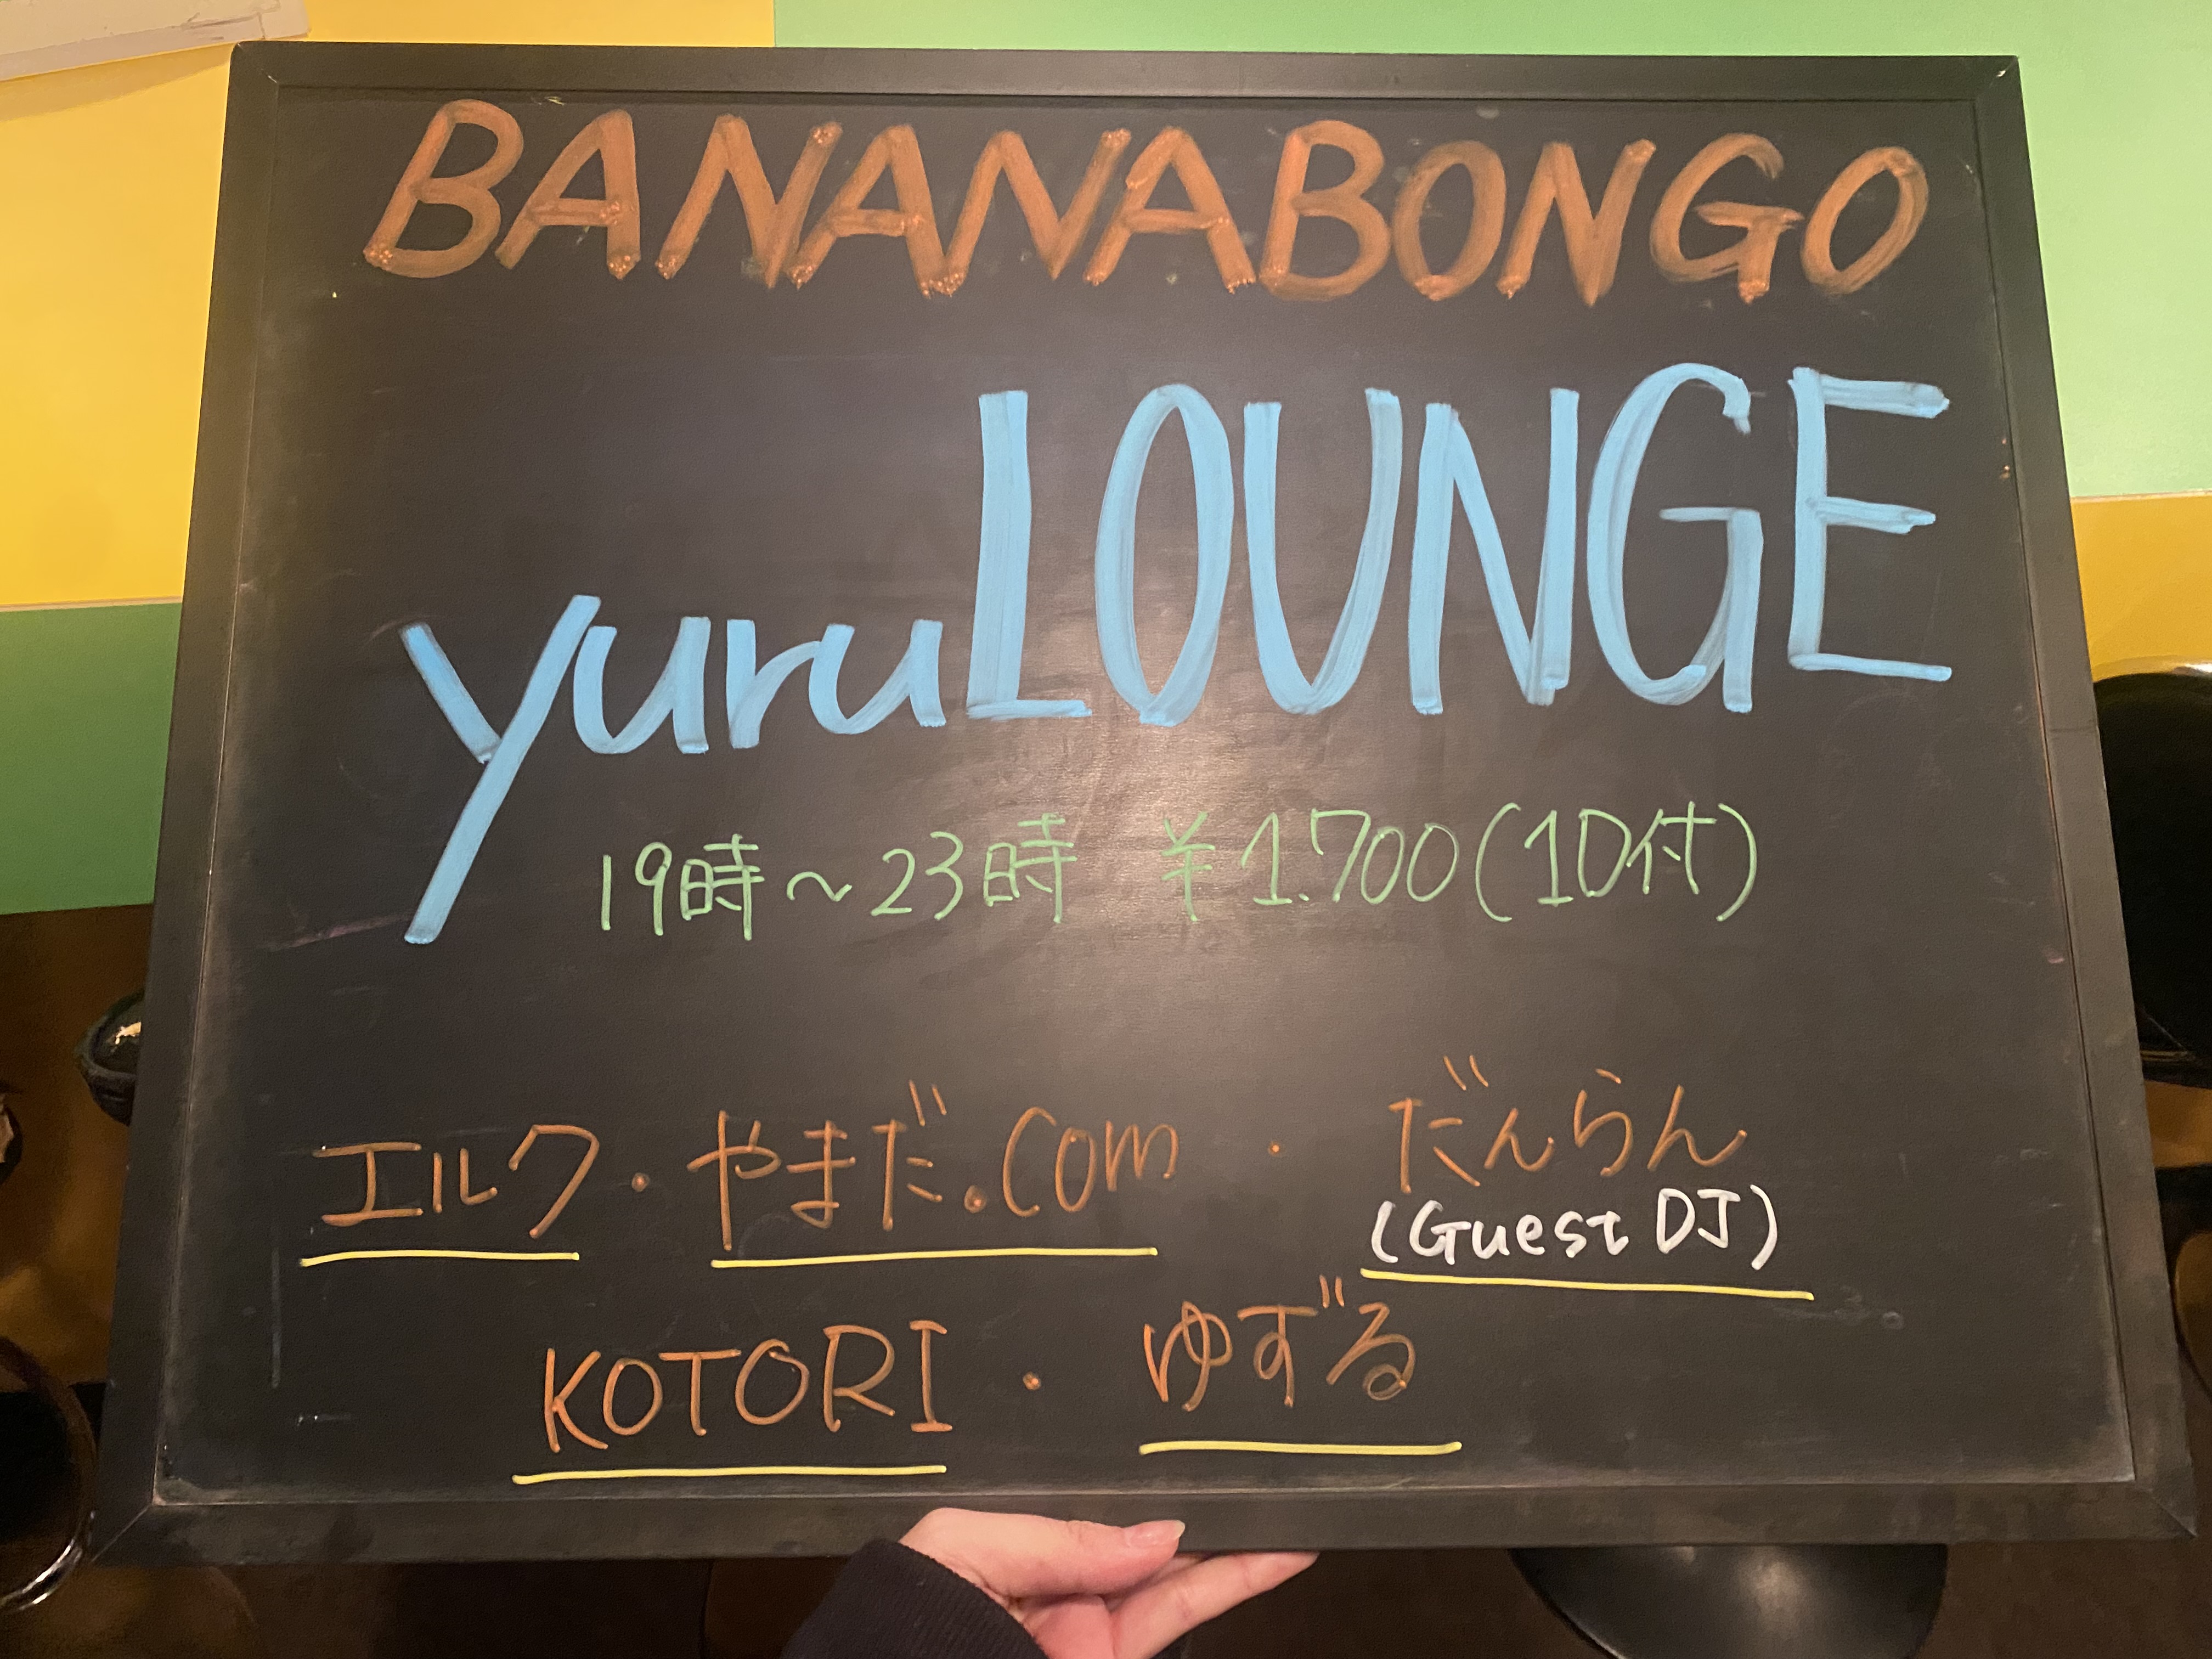 BANANABONGO
yuruLOUNGE
19時～23時 ¥1.700(1D付)
エルク・やまだ.com・だんらん
(Guest DJ)
KOTORI・ゆずる